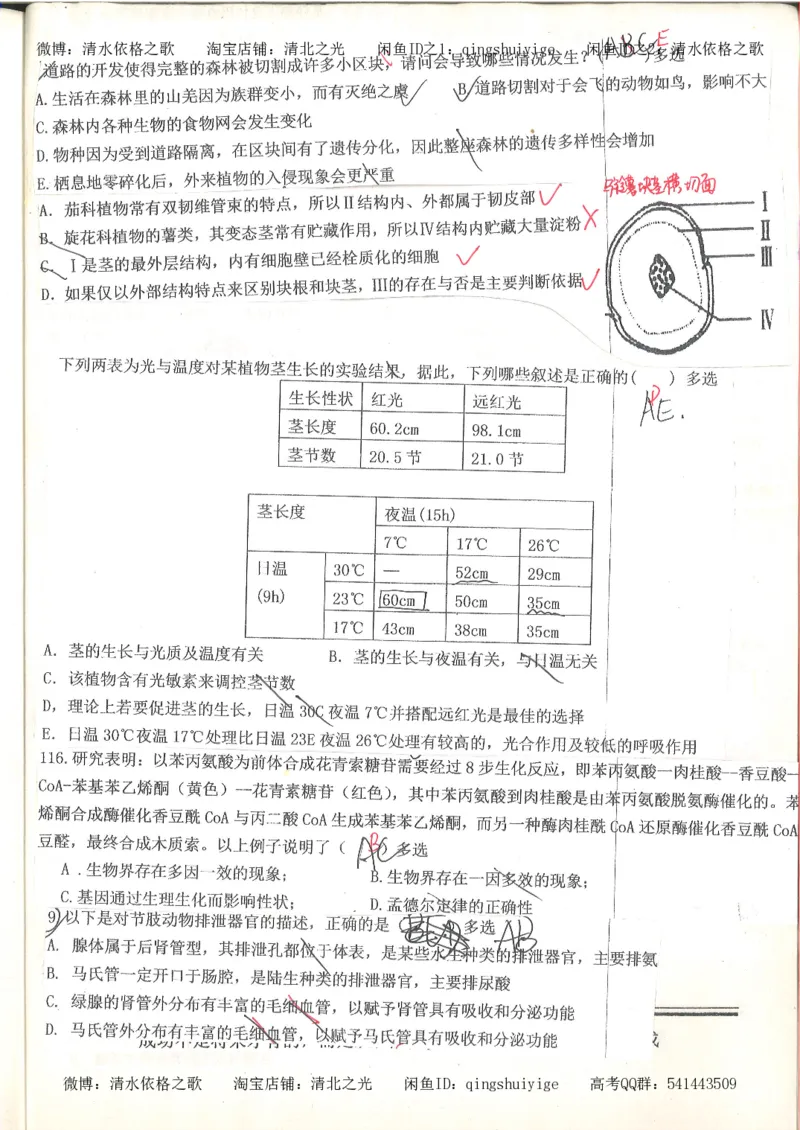 微博：清水依格之歌　淘宝店铺：清北之光　闲鱼ID之1：qingshuiyige　闲鱼ID之2：清水依格之歌
道路的开发使得完整的森林被切割成许多小区块，请问会导致哪些情况发生？(ABCE)多选
A.生活在森林里的山羌因为族群变小，而有灭绝之虞　B.道路切割对于会飞的动物如鸟，影响不大
C.森林内各种生物的食物网会发生变化
D.物种因为受到道路隔离，在区块间有了遗传分化，因此整座森林的遗传多样性会增加
E.栖息地零碎化后，外来植物的入侵现象会更严重
A. 茄科植物常有双韧维管束的特点，所以Ⅱ结构内、外都属于韧皮部
B. 旋花科植物的薯类，其变态茎常有贮藏作用，所以Ⅳ结构内贮藏大量淀粉
C. Ⅰ是茎的最外层结构，内有细胞壁已经栓质化的细胞
D. 如果仅以外部结构特点来区别块根和块茎，Ⅲ的存在与否是主要判断依据
横切面
Ⅰ
Ⅱ
Ⅲ
Ⅳ
下列两表为光与温度对某植物茎生长的实验结果，据此，下列哪些叙述是正确的(　)多选
ADE.
生长性状 红光 远红光
茎长度 60.2cm 98.1cm
茎节数 20.5节 21.0节
茎长度 夜温(15h)
7℃ 17℃ 26℃
日温(9h) 30℃ — 52cm 29cm
23℃ 60cm 50cm 35cm
17℃ 43cm 38cm 35cm
A. 茎的生长与光质及温度有关　B. 茎的生长与夜温有关，与日温无关
C. 该植物含有光敏素来调控茎节数
D, 理论上若要促进茎的生长，日温30C夜温7℃并搭配远红光是最佳的选择
E. 日温30℃夜温17℃处理比日温23E夜温26℃处理有较高的，光合作用及较低的呼吸作用
116.研究表明：以苯丙氨酸为前体合成花青素糖苷需要经过8步生化反应，即苯丙氨酸—肉桂酸--香豆酸—
CoA-苯基苯乙烯酮（黄色）--花青素糖苷（红色），其中苯丙氨酸到肉桂酸是由苯丙氨酸脱氨酶催化的。苯
烯酮合成酶催化香豆酰CoA与丙二酸CoA生成苯基苯乙烯酮，而另一种酶肉桂酰CoA还原酶催化香豆酰CoA
豆醛，最终合成木质素。以上例子说明了（ABC）多选
A .生物界存在多因一效的现象；　B.生物界存在一因多效的现象；
C.基因通过生理生化而影响性状；　D.孟德尔定律的正确性
9)以下是对节肢动物排泄器官的描述，正确的是　多选 AB
A. 腺体属于后肾管型，其排泄孔都位于体表，是某些水生种类的排泄器官，主要排氨
B. 马氏管一定开口于肠腔，是陆生种类的排泄器官，主要排尿酸
C. 绿腺的肾管外分布有丰富的毛细血管，以赋予肾管具有吸收和分泌功能
D. 马氏管外分布有丰富的毛细血管，以赋予马氏管具有吸收和分泌功能
微博：清水依格之歌　淘宝店铺：清北之光　闲鱼ID：qingshuiyige　高考QQ群：541443509